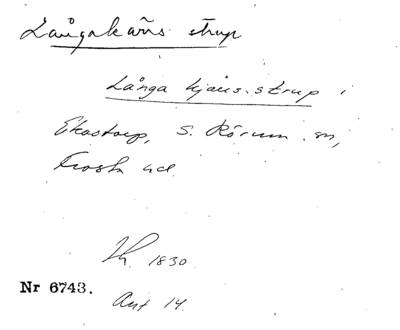 Långakäns strup
Långa kjäns-strup i
Ekastorp, S. Rörum sn,
Frosta hd.
Th. 1830
Nr 6743.
Ant 14.